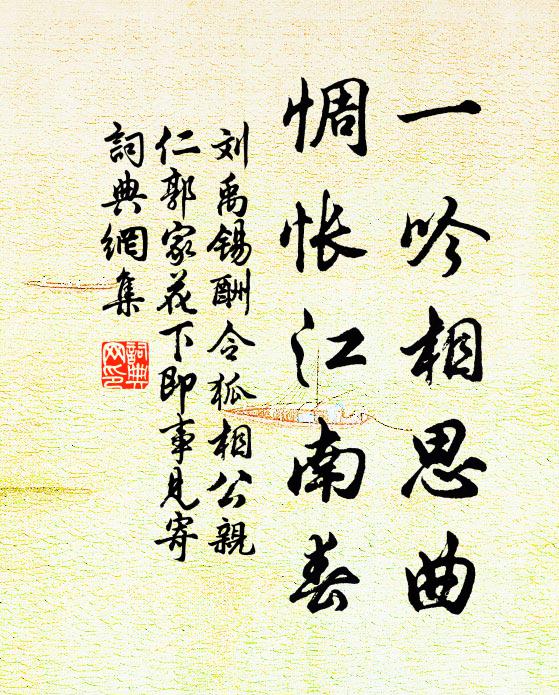 一吟相思曲
惆怅江南春
刘禹锡酬令狐相公親
仁郭家花下即事見寄
詞典網集
詞典
网印